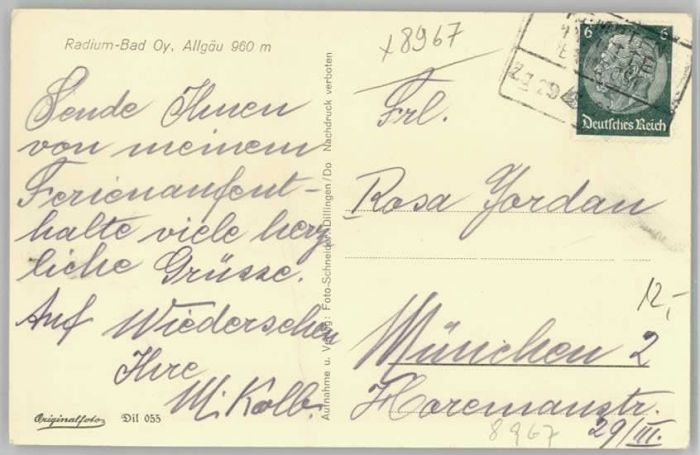 Radium-Bad Oy, Allgäu 960 m
Sende Ihnen
von meinem
Ferienaufent-
halte viele herz
liche Grüsse.
Auf Wiedersehen
Ihre
M. Kolb.
Originalfoto
Dil 055
Aufnahme u. Verlag: Foto-Schneider, Dillingen/Do Nachdruck verboten
x8967
6 6
Deutsches Reich
Frl.
Rosa Jordan
12,-
München 2
Horemanstr.
29/III.
8967